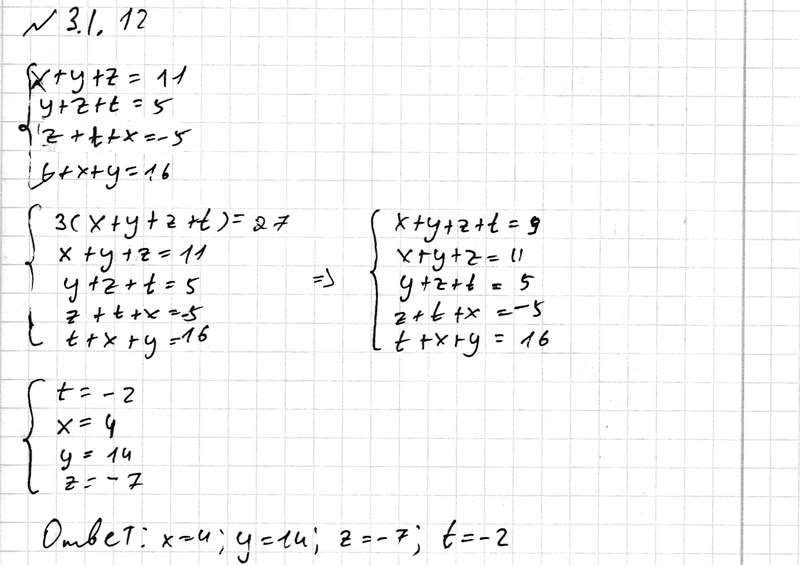 № 3.1.12
x+y+z = 11
y+z+t = 5
z+t+x=-5
t+x+y=16
3(x+y+z+t)=27
x+y+z=11
y+z+t=5
z+t+x=-5
t+x+y=16
=>
x+y+z+t=9
x+y+z=11
y+z+t=5
z+t+x=-5
t+x+y=16
t=-2
x=4
y=14
z=-7
Ответ: x=4; y=14; z=-7; t=-2